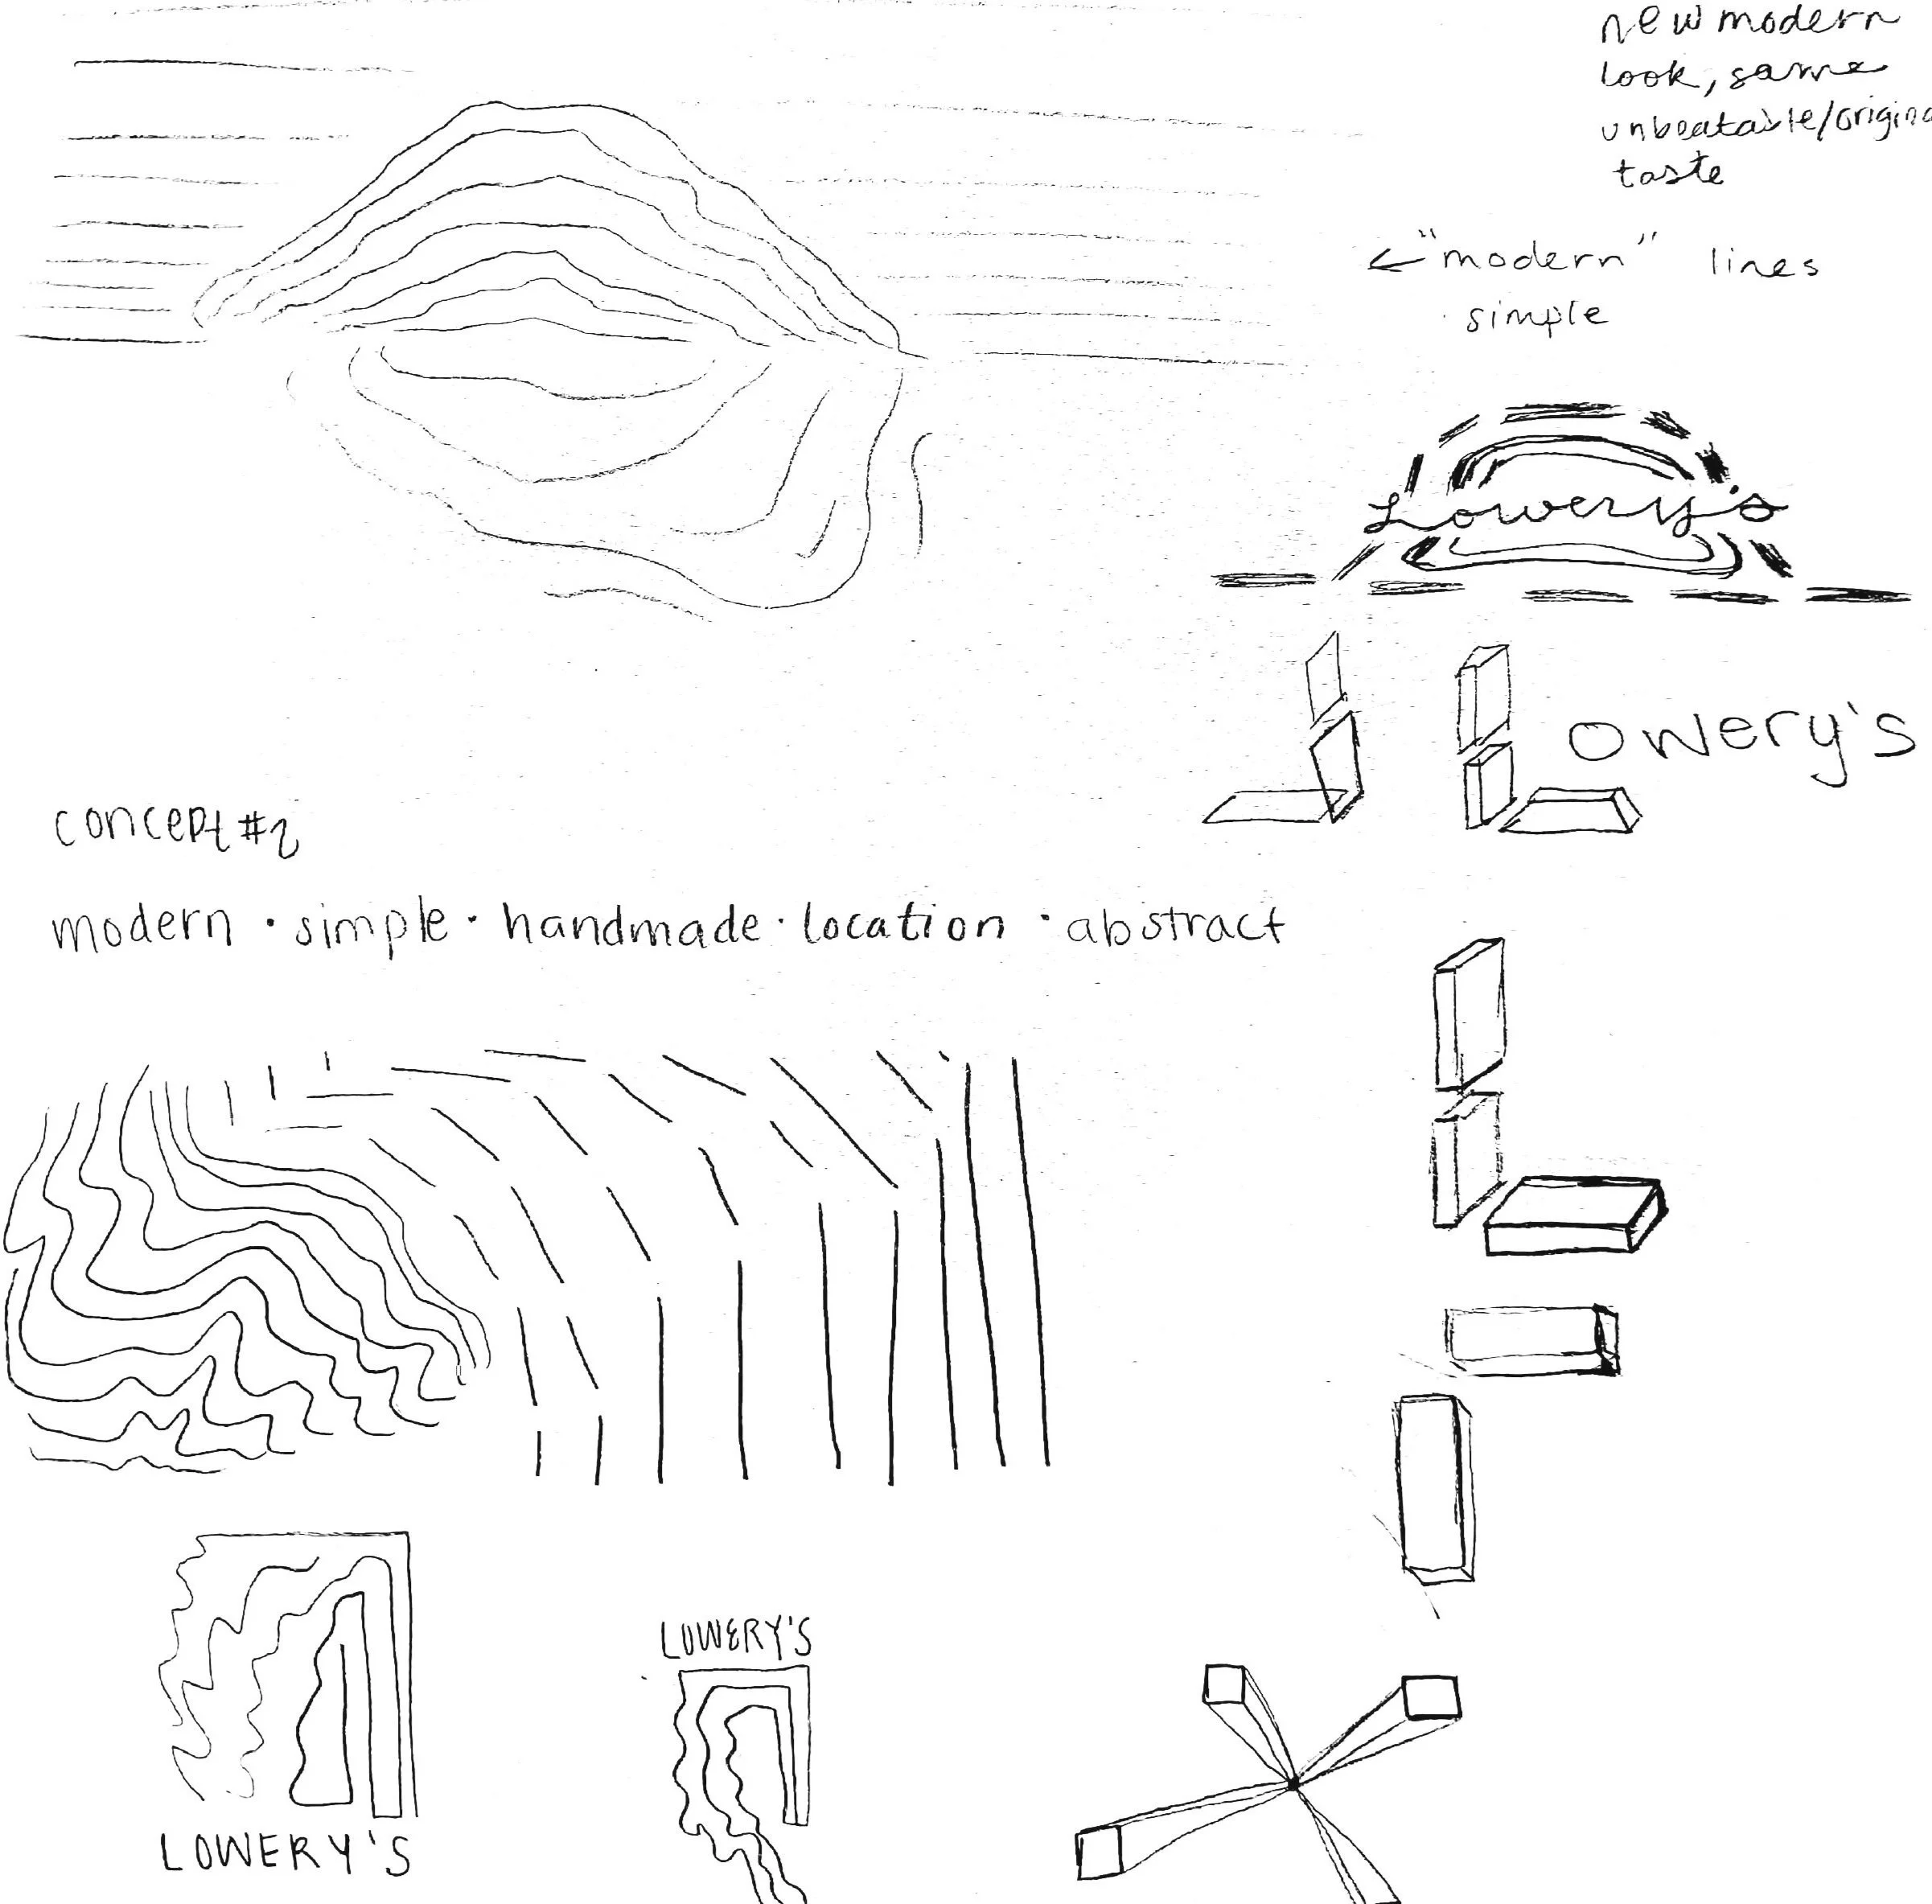 new modern
look, same
unbeatable/origina
taste
← "modern" lines
simple
Lowery's
Lowery's
concept #2
modern · simple · handmade · location · abstract
LOWERY'S
LOWERY'S